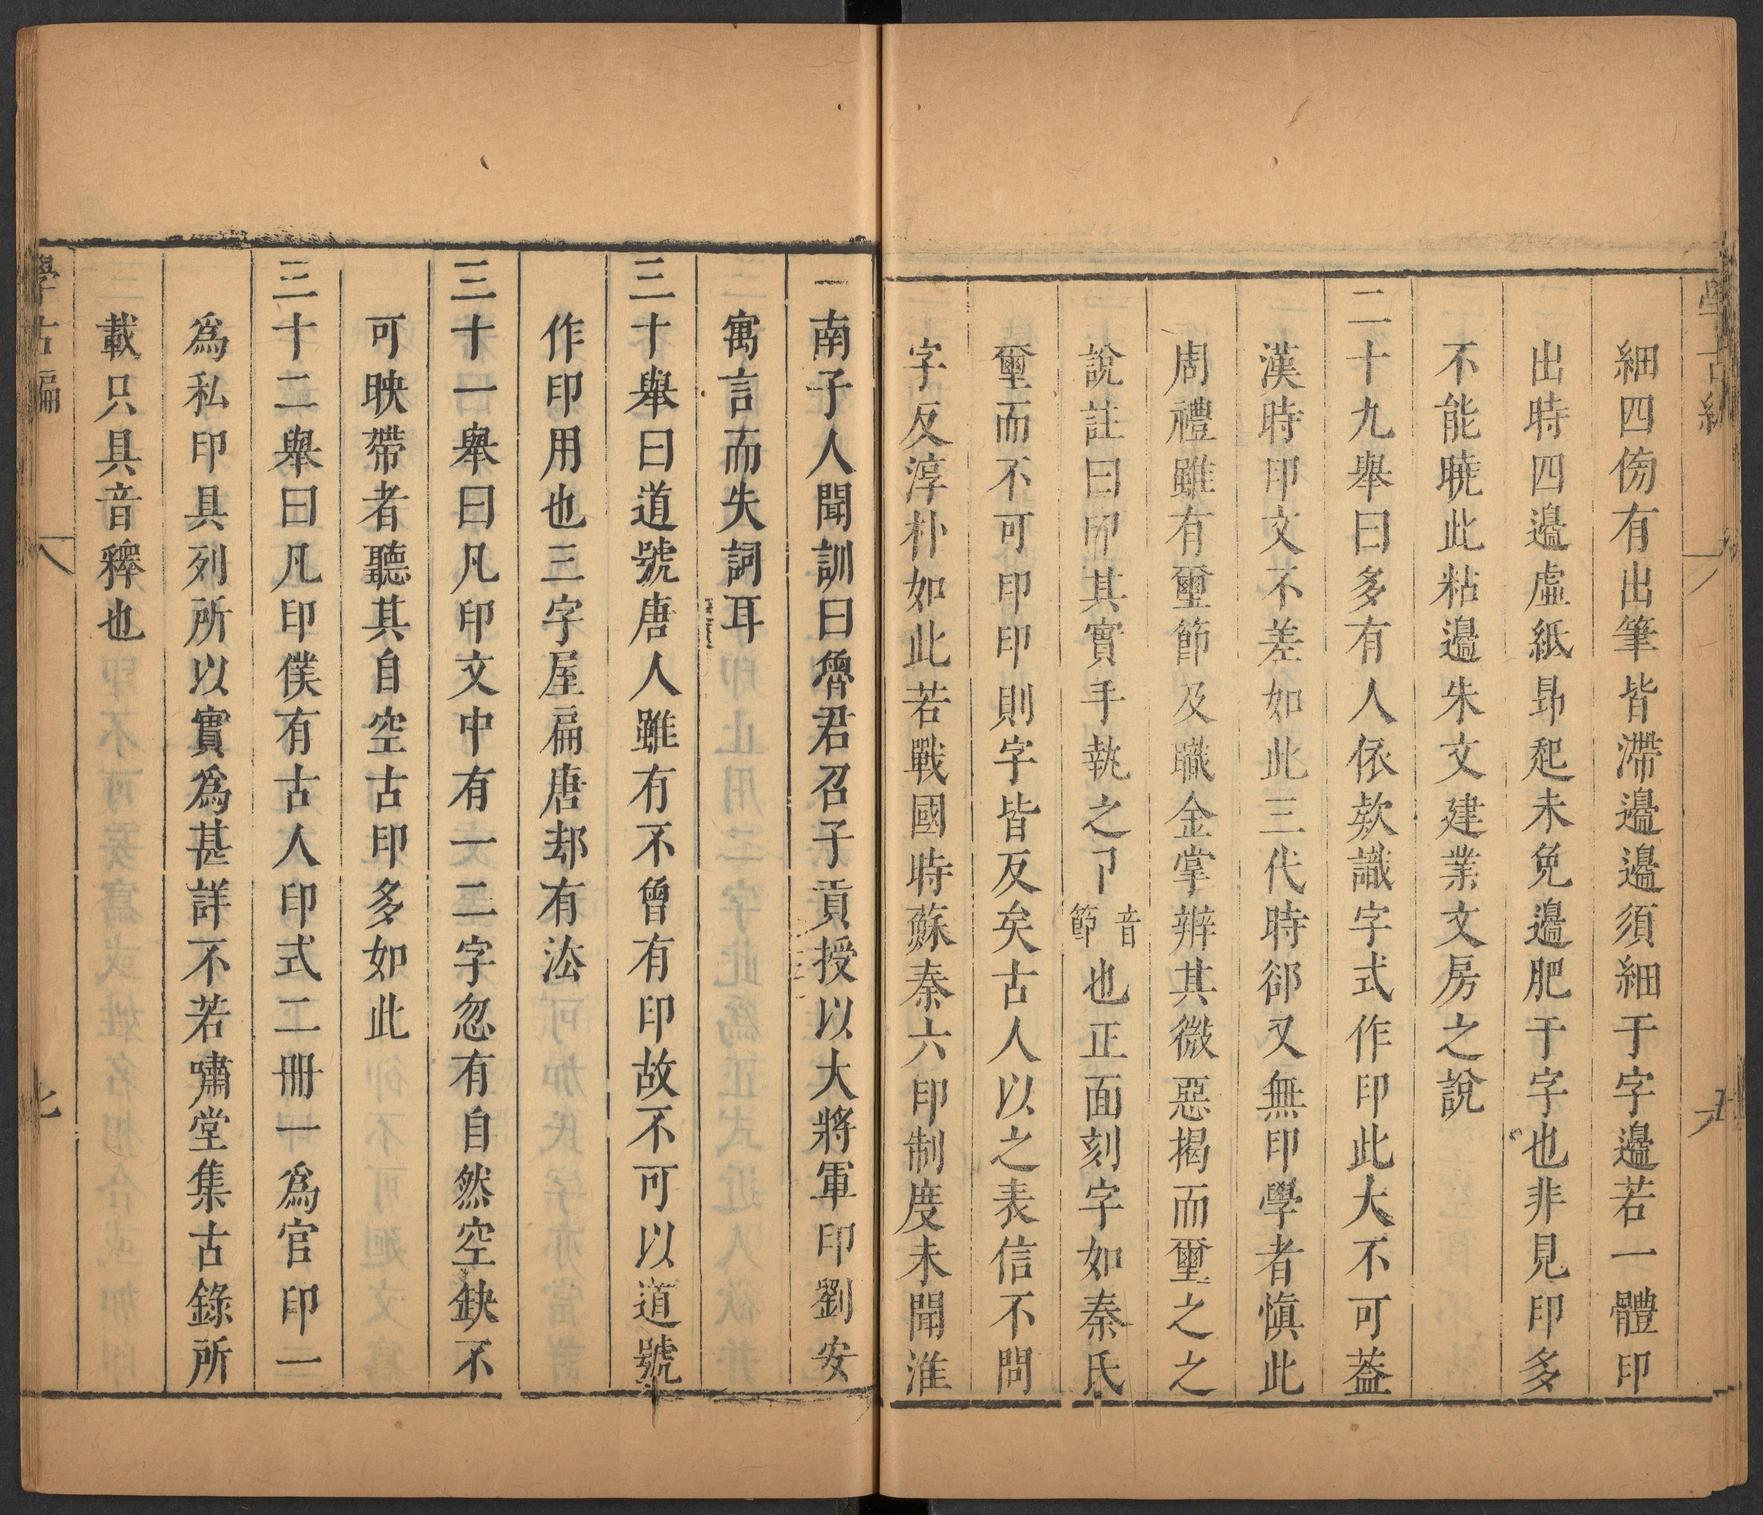 學古編
細四傍有出筆皆滯邉邉須細于字邉若一體印
出時四邉虛紙昻起未免邉肥于字也非見印多
不能曉此粘邉朱文建業文房之說
二十九舉曰多有人依欵識字式作印此大不可葢
漢時印文不差如此三代時郤又無印學者慎此
周禮雖有璽節及職金掌辨其微惡揭而璽之之
說註曰印其實手執之卩音節也正面刻字如秦氏
璽而不可印印則字皆反矣古人以之表信不問
字反淳朴如此若戰國時蘇秦六印制度未聞淮
南子人聞訓曰魯君召子貢授以大將軍印劉安
寓言而失詞耳
三十舉曰道號唐人雖有不曾有印故不可以道號
作印用也三字屋扁唐却有法
三十一舉曰凡印文中有一二字忽有自然空缺不
可映帶者聽其自空古印多如此
三十二舉曰凡印僕有古人印式二冊一爲官印一
爲私印具列所以實爲甚詳不若嘯堂集古錄所
載只具音釋也
學古編 七